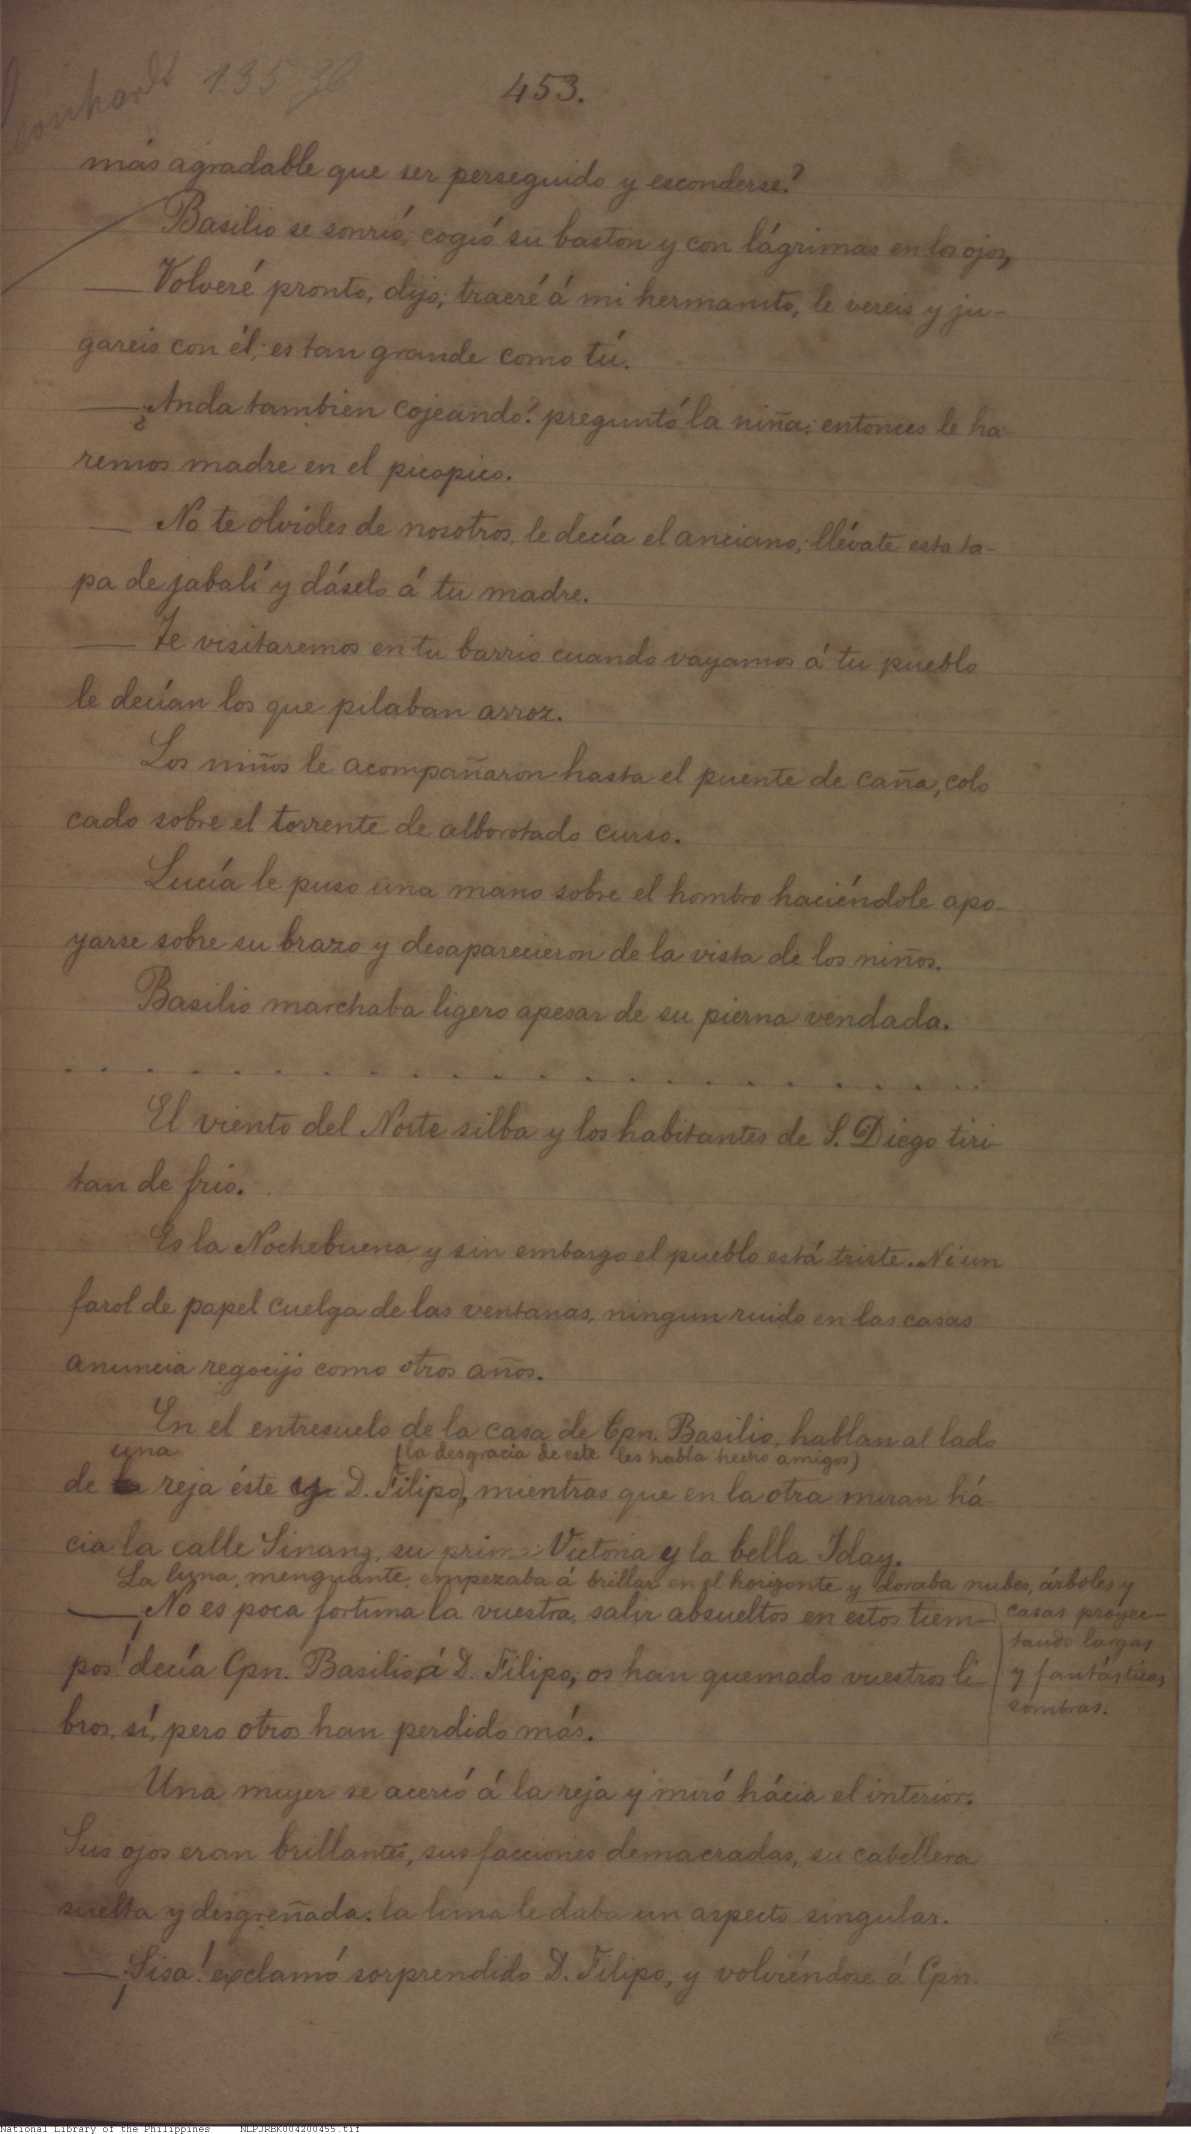 453.
135 36
más agradable que ser perseguido y esconderse?
Basilio se sonrió, cogió su baston y con lágrimas en los ojos,
— Volveré pronto, dijo; traeré á mi hermanito, le vereis y ju-
gareis con él; es tan grande como tú.
— ¿Anda tambien cojeando? preguntó la niña; entonces le ha
remos madre en el picopico.
— No te olvides de nosotros, le decía el anciano; llévate esta ta-
pa de jabalí y dáselo á tu madre.
— Te visitaremos en tu barrio cuando vayamos á tu pueblo
le decían los que pilaban arroz.
Los niños le acompañaron hasta el puente de caña, colo
cado sobre el torrente de alborotado curso.
Lucía le puso una mano sobre el hombro haciéndole apo-
yarse sobre su brazo y desaparecieron de la vista de los niños.
Basilio marchaba ligero apesar de su pierna vendada.
. . . . . . . . . . . . . . . . . . . . . . .
El viento del Norte silba y los habitantes de S. Diego tiri
tan de frio.
Es la Nochebuena y sin embargo el pueblo está triste. Ni un
farol de papel cuelga de las ventanas, ningun ruido en las casas
anuncia regocijo como otros años.
En el entresuelo de la casa de Cpn. Basilio, hablan al lado
una (la desgracia de este les había hecho amigos)
de reja éste y D. Filipo, mientras que en la otra miran há
cia la calle Sinang, su prima Victoria y la bella Iday.
La luna, menguante, empezaba á brillar en el horizonte y doraba nubes, árboles y
casas proyec-
tando largas
y fantásticas
sombras.
— ¡No es poca fortuna la vuestra, salir absueltos en estos tiem-
pos! decía Cpn. Basilio, á D. Filipo; os han quemado vuestros li-
bros, sí, pero otros han perdido más.
Una mujer se acercó á la reja y miró hácia el interior.
Sus ojos eran brillantes, sus facciones demacradas, su cabellera
suelta y desgreñada; la luna le daba un aspecto singular.
— ¡Sisa! exclamó sorprendido D. Filipo, y volviéndose á Cpn.
National Library of the Philippines NLPJRBK004200455.tif